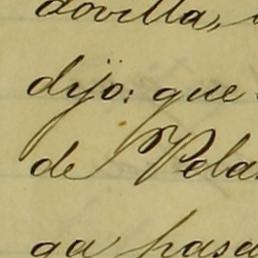 dovilla,
dijo: que
de Pela
ga pasa